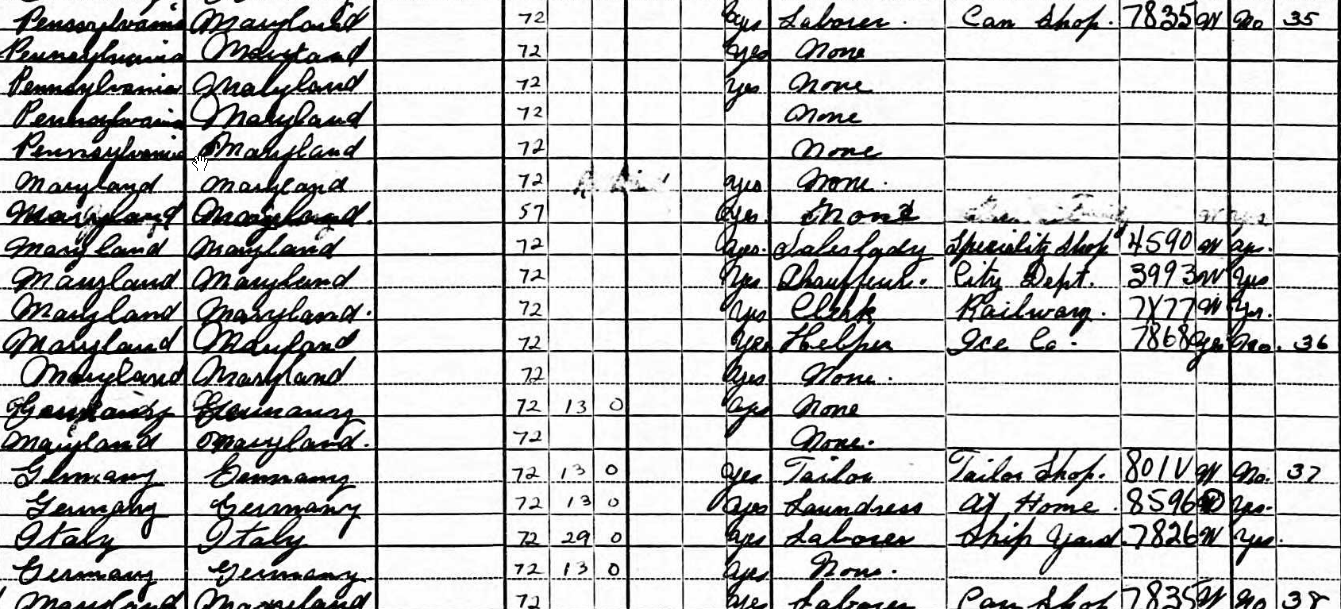 Pennsylvania Maryland 72 Yes Laborer. Can Shop. 7835 W No 35
Pennsylvania Maryland 72 Yes None
Pennsylvania Maryland 72 Yes None
Pennsylvania Maryland 72 None
Pennsylvania Maryland 72 None
Maryland Maryland 72 Yes None.
Maryland Maryland. 57 Yes. None
Maryland Maryland 72 Yes. Saleslady Speciality Shop 4590 W Yes.
Maryland Maryland 72 Yes Chauffeur. City Dept. 3993 W Yes
Maryland Maryland. 72 Yes Clerk Railway. 7X77 W Yes.
Maryland Maryland 72 Yes Helper Ice Co. 7868 Yes No. 36
Maryland Maryland 72 Yes None.
Germany Germany 72 13 0 Yes None
Maryland Maryland. 72 None.
Germany Germany 72 13 0 Yes Tailor Tailor Shop. 801V W No. 37
Germany Germany 72 13 0 Yes Laundress At Home. 8596 O Yes.
Italy Italy 72 29 0 Yes Laborer Ship Yard. 7826 W Yes.
Germany Germany. 72 13 0 Yes None.
Maryland Maryland 72 Yes Laborer Can Shop 7835 W No 38